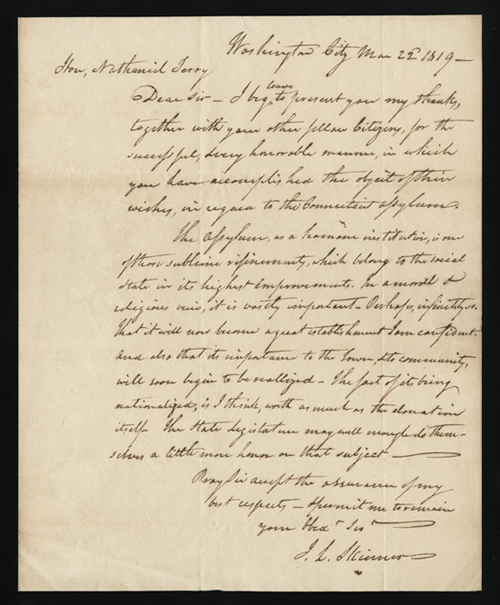 Washington City Mar 22d 1819 —
Hon, Nathaniel Terry
Dear Sir — I beg leave to present you my thanks,
together with your other fellow Citizens, for the
successful, & very honorable manner, in which
you have accomplished the object of their
wishes, in regard to the Connecticut Assylum.
The Assylum, as a humane institution, is one
of those sublime refinements, which belong to the social
state in its highest improvements. In a moral &
religious view, it is vastly important — Perhaps, infinitely so.
That it will now become a great establishment I am confident —
and also that its importance to the town, & to community,
will soon begin to be reallized — The fact of its being
nationalized, is I think, worth as much as the donation
itself — The State Legislature may well enough do them-
selves a little more honor on that subject —
Pray Sir accept the assurance of my
best respects — & permit me to remain
your Obedt Sert
J. L. Skinner